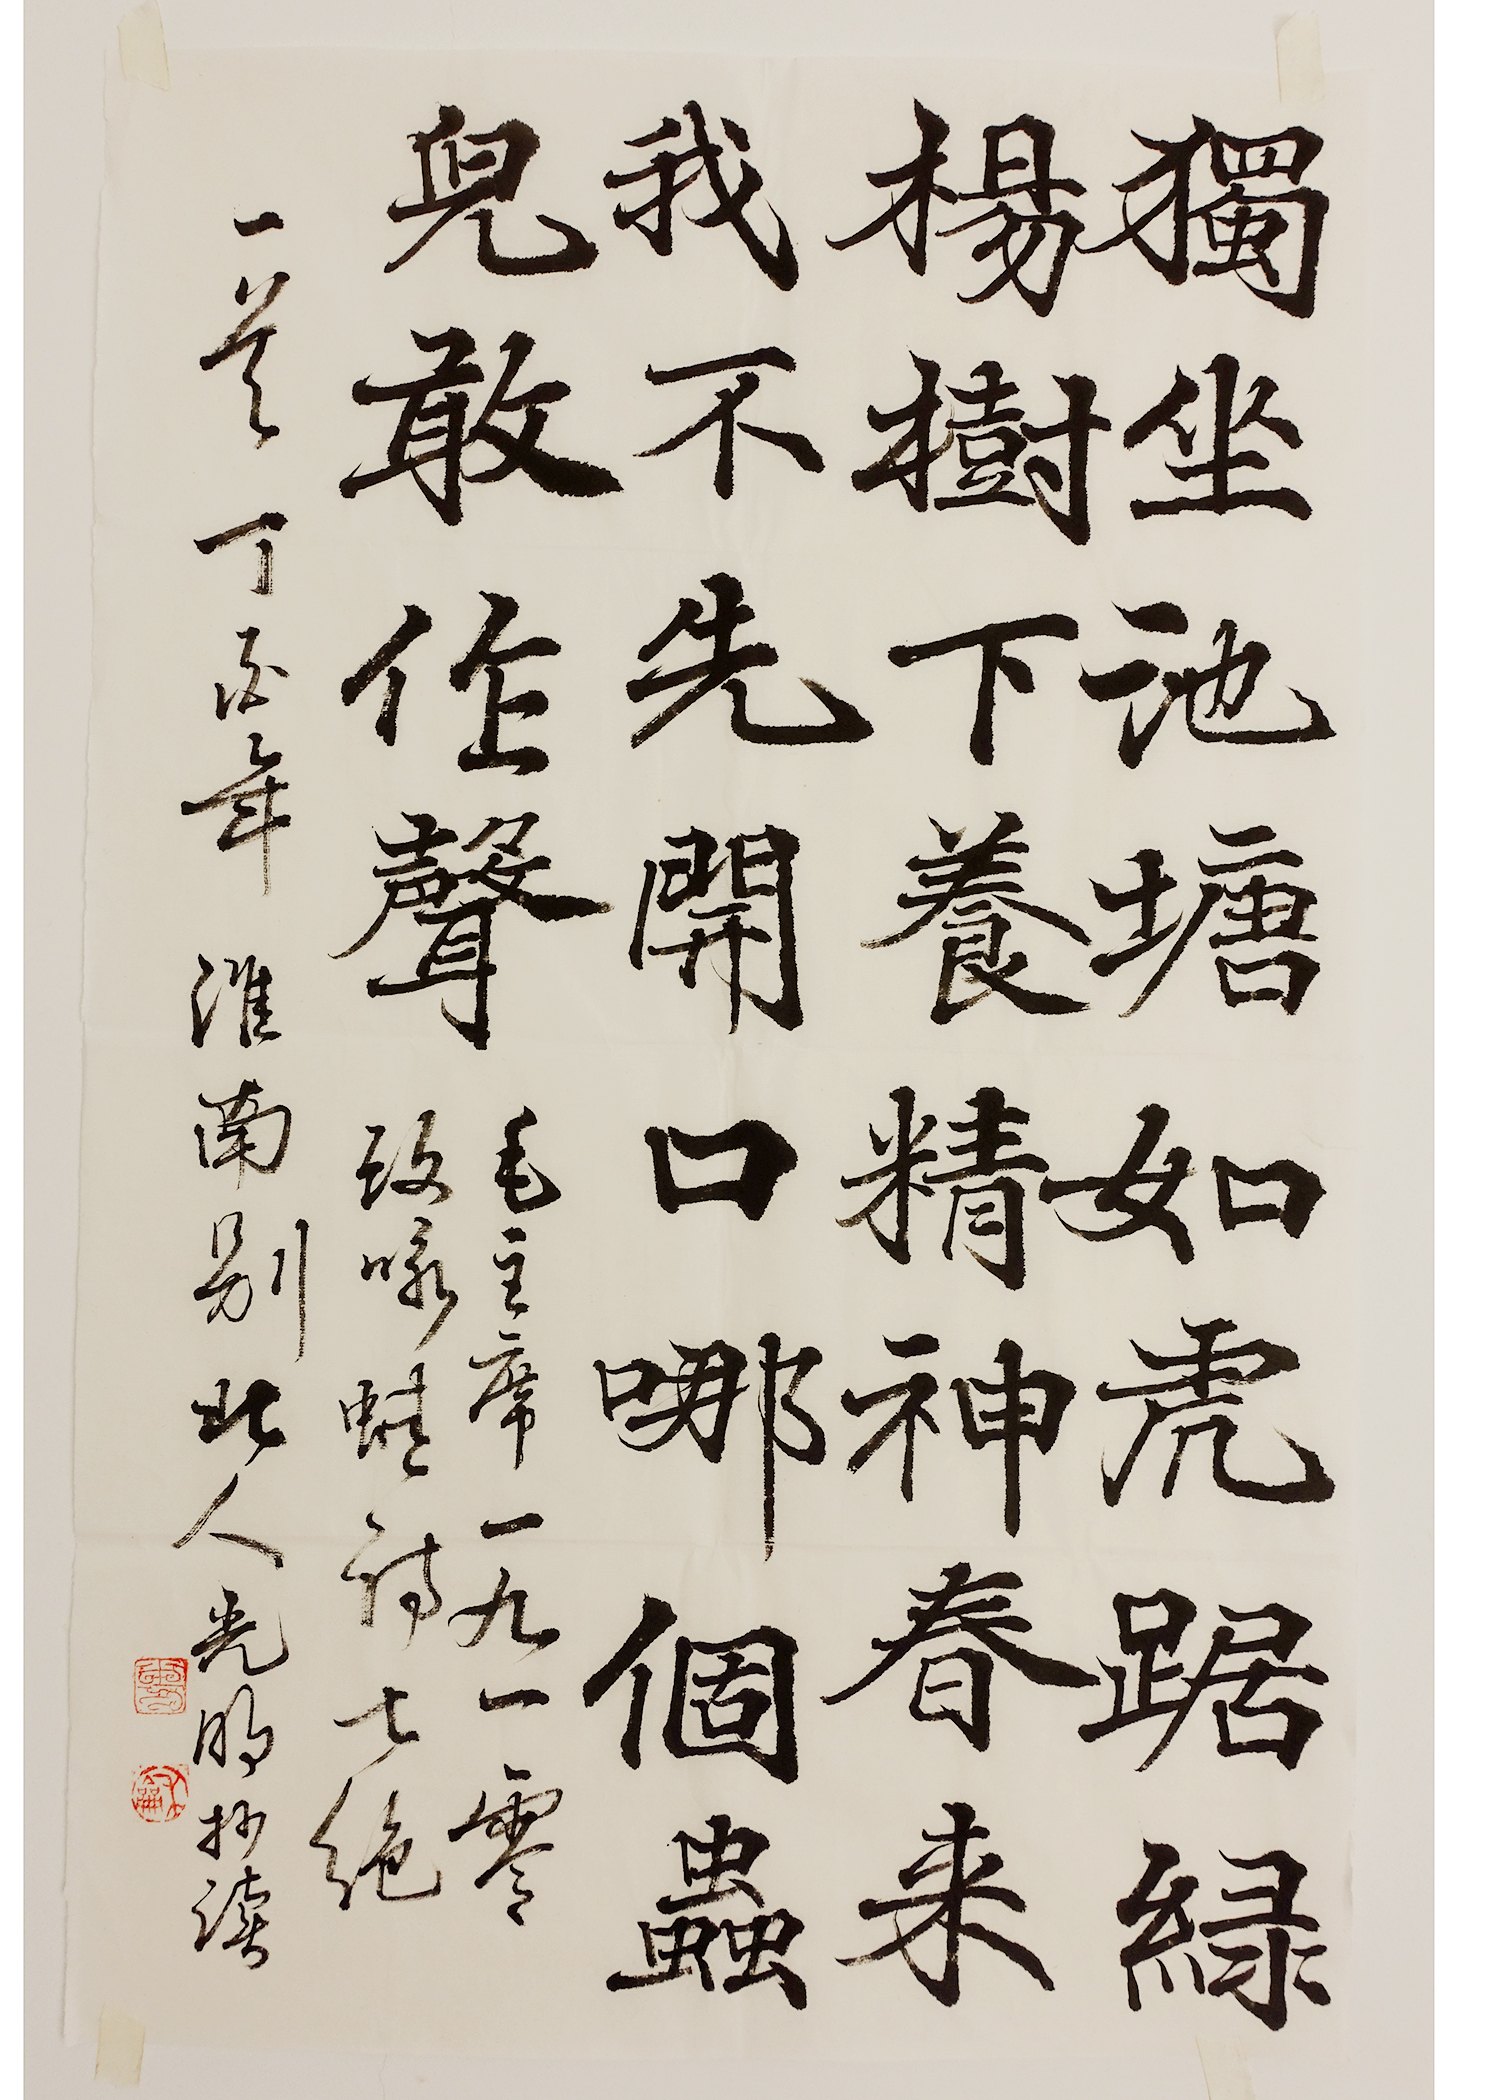 獨坐池塘如虎踞緑
楊樹下養精神春来
我不先開口哪個蟲
兒敢作聲
毛主席一九一零
改咏蛙詩七絶
一首丁酉年淮南别北人光明抄读